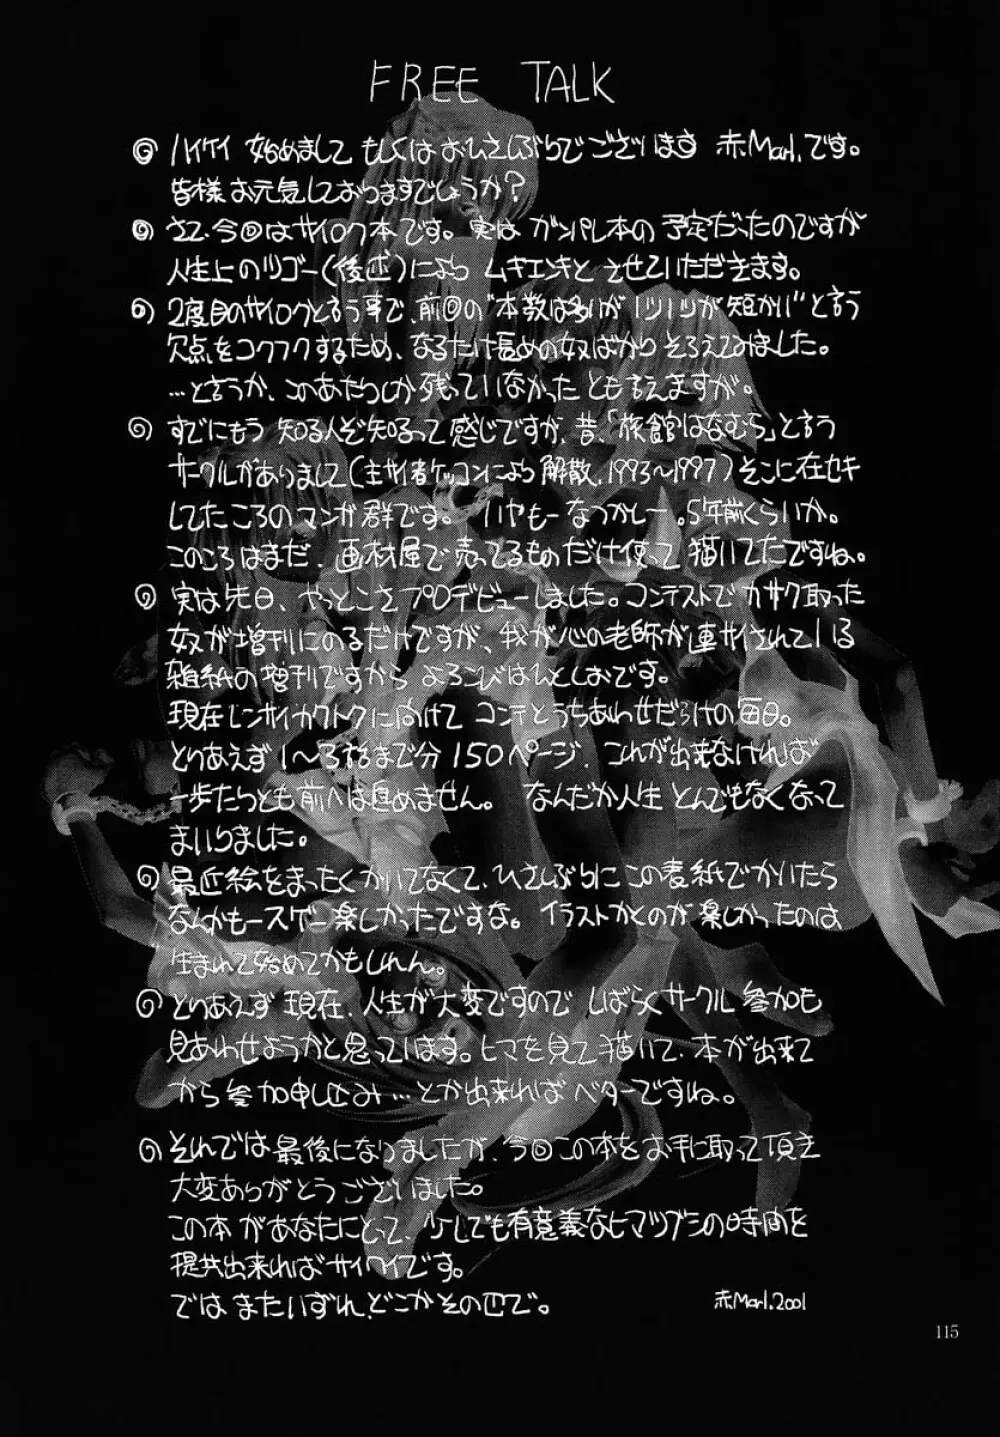 FREE TALK
ハイケイ 始めまして もしくはおひさしぶりでございます 赤Marl.です。
皆様お元気しておりますでしょうか?
さて、今回はサイロク本です。実は ガンパレ本の予定だったのですが
人生上のツゴー(後述)により ムキエンキと させていただきます。
2度目のサイロクと言う事で、前回の"本数は多いが1ツ1ツが短かい"と言う
欠点をコクフクするため、なるたけ長めの奴ばかりそろえてみました。
…と言うか、このあたりしか残っていなかった とも言えますが。
すでにもう 知る人ぞ知るって感じですが、昔、「旅館はなむら」と言う
サークルがありまして(主サイ者ケッコンにより解散、1993〜1997)そこに在セキ
してたころのマンガ群です。 いやもーなつかしー。5年前くらいか。
このころはまだ、画材屋で売ってるものだけ使って描いてたですね。
実は先日、やっとこさプロデビューしました。コンテストでカサク取った
奴が増刊にのるだけですが、我が心の老師が連サイされている
雑紙の増刊ですから よろこびはひとしおです。
現在レンサイカクトクに向けて コンテとうちあわせだらけの毎日。
とりあえず1〜3話まで分150ページ、これが出来なければ
一歩たりとも前へは進めません。 なんだか人生 とんでもなくなって
まいりました。
最近絵をまったくかいてなくて、ひさしぶりにこの表紙でかいたら
なんかもースゲー楽しかったですな。イラストかくのが楽しかったのは
生まれて始めてかもしれん。
とりあえず現在、人生が大変ですので しばらくサークル参加も
見あわせようかと思っています。ヒマを見て描いて、本が出来て
から参加申し込み…とか出来ればベターですね。
それでは最後になりましたが、今回この本をお手に取って頂き
大変ありがとうございました。
この本があなたにとって、少しでも有意義なヒマツブシの時間を
提共出来ればサイワイです。
ではまたいずれ、どこかその辺で。
赤Marl.2001
115